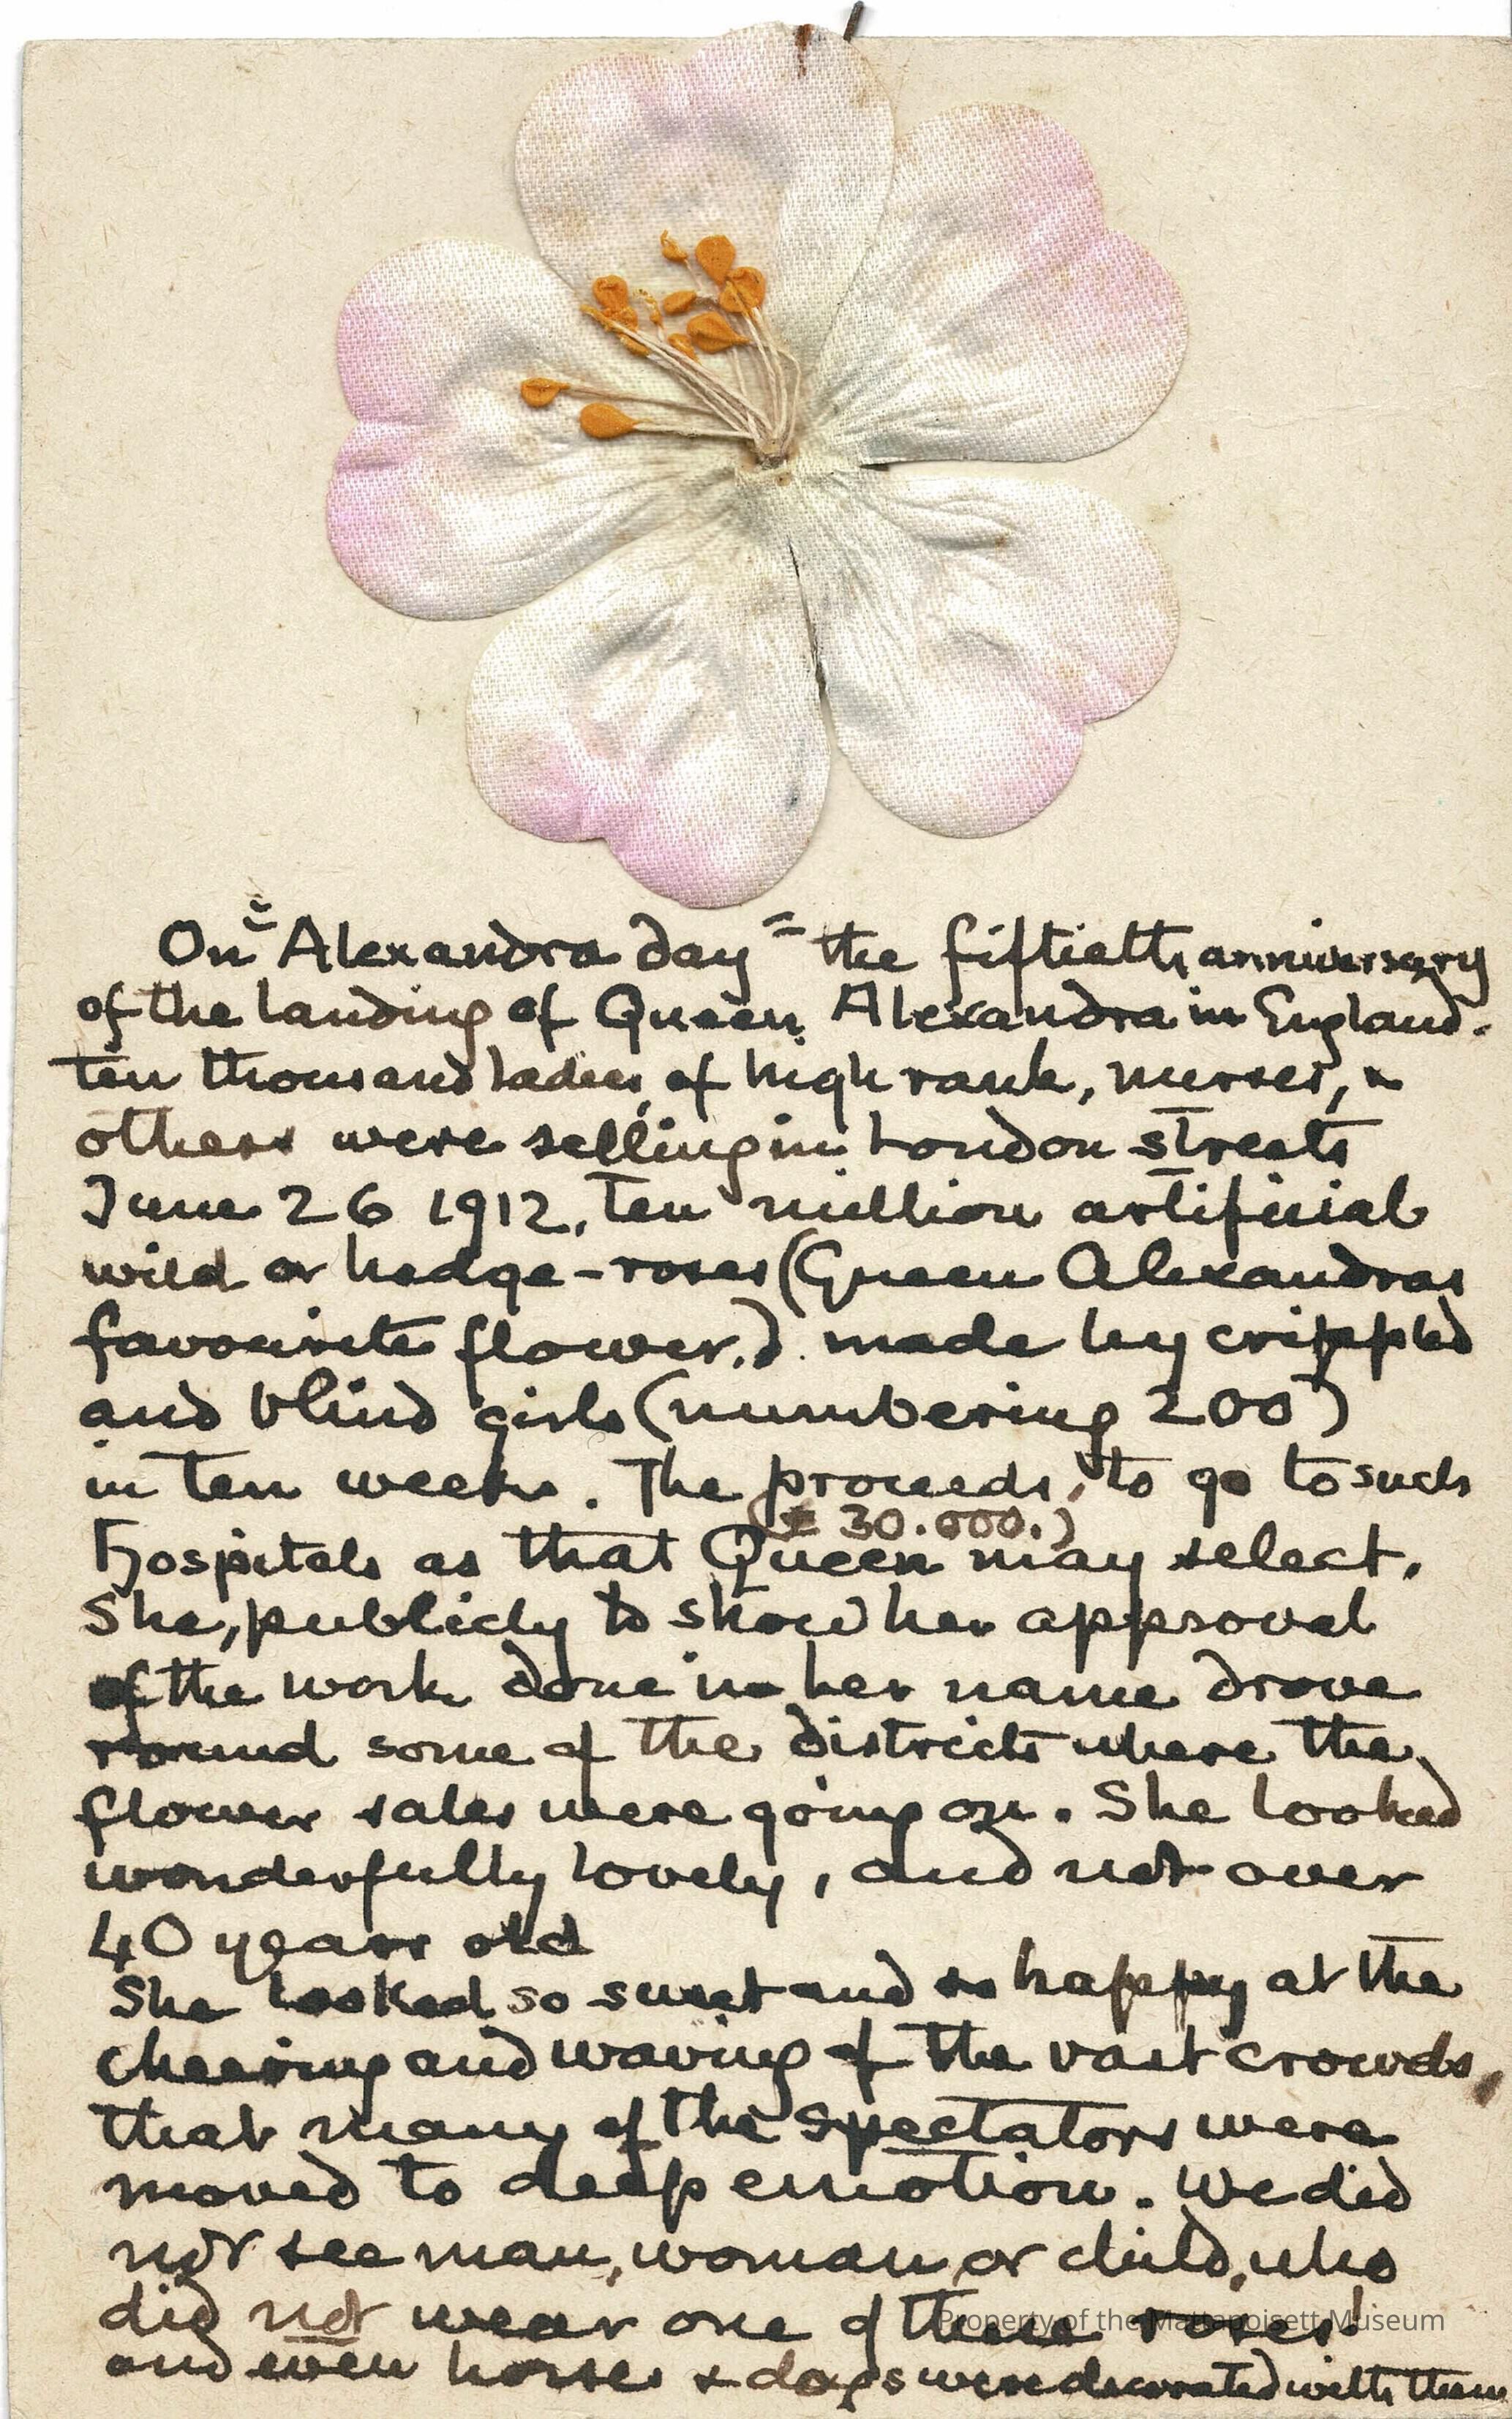 On "Alexandra day" the fiftieth anniversary
of the landing of Queen Alexandra in England.
ten thousand ladies, of high rank, nurses, &
others were selling in London streets
June 26 1912, ten million artificial
wild or hedge-roses (Queen Alexandras
favourite flower.) made by crippled
and blind girls (numbering 200)
in ten weeks. The proceeds, to go to such
(£ 30.000.)
Hospitals as that Queen may select.
She, publicly to show her approval
of the work done in her name drove
round some of the districts where the
flower sales were going on. She looked
wonderfully lovely, and not over
40 years old
She looked so sweet and so happy at the
cheering and waving of the vast crowds,
that many of the spectators were
moved to deep emotion. We did
not see man, woman, or child, who
did not wear one of these roses!
and even horses & dogs were decorated with them
Property of the Mattapoisett Museum